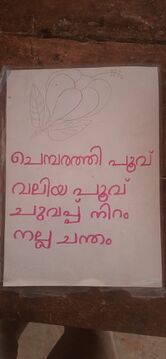 ചെമ്പരത്തി പൂവ്
വലിയ പൂവ്
ചുവപ്പ് നിറം
നല്ല ചന്തം